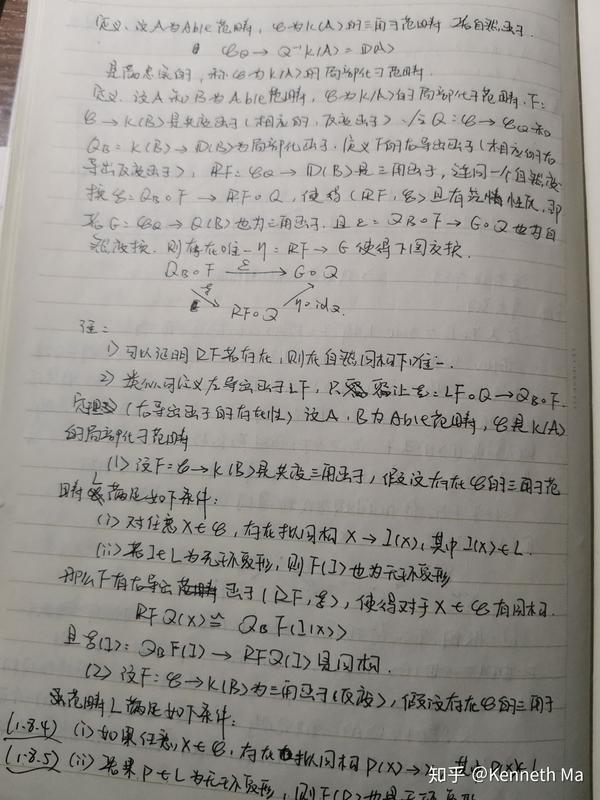 定义. 设A为Able范畴, φ为K(A)的三角子范畴 若自然函子.
φ_Q → Q⁻¹K(A) = D(A)
是满忠实的, 称φ为K(A)的局部化子范畴.
定义. 设A和B为Able范畴, φ为K(A)的局部化子范畴. F:
φ → K(B)是共变函子(相应的, 反变函子). 令Q: φ → φ_Q 和
Q_B: K(B) → D(B)为局部化函子. 定义F的右导出函子(相应的右
导出反变函子), RF: φ_Q → D(B)是三角函子, 连同一个自然变
换 ξ: Q_B∘F → RF∘Q, 使得(RF, ξ)具有泛性质, 即
若G: φ_Q → Q(B)也为三角函子, 且 ε: Q_B∘F → G∘Q 也为自
然变换. 则存在唯一η: RF → G 使得下图交换.
Q_B∘F —ε→ G∘Q
ξ RF∘Q η∘id_Q.
注:
1) 可以证明RF若存在, 则在自然同构下唯一.
2) 类似可定义左导出函子LF, 只需要让ξ: LF∘Q → Q_B∘F.
定理 (右导出函子的存在性) 设A. B为Able范畴, φ是K(A)
的局部化子范畴
(1) 设F: φ → K(B)是共变三角函子, 假设存在φ的三角子范
畴L满足如下条件:
(i) 对任意X∈φ, 存在拟同构 X → I(X), 其中I(X)∈L.
(ii) 若I∈L为无环复形, 则F(I)也为无环复形
那么F有右导出函子(RF, ξ), 使得对于X∈φ有同构.
RFQ(X) ≅ Q_B F(I(X))
且ξ(I): Q_B F(I) → RFQ(I)是同构.
(2) 设F: φ → K(B)为三角函子(反变), 假设存在φ的三角子
范畴L满足如下条件:
(1.3.4) (i) 如果任意X∈φ, 存在拟同构P(X) → X, 其中P(X)∈L
(1.3.5) (ii) 若果P∈L为无环复形, 则F(P)也是无环复形
知乎 @Kenneth Ma